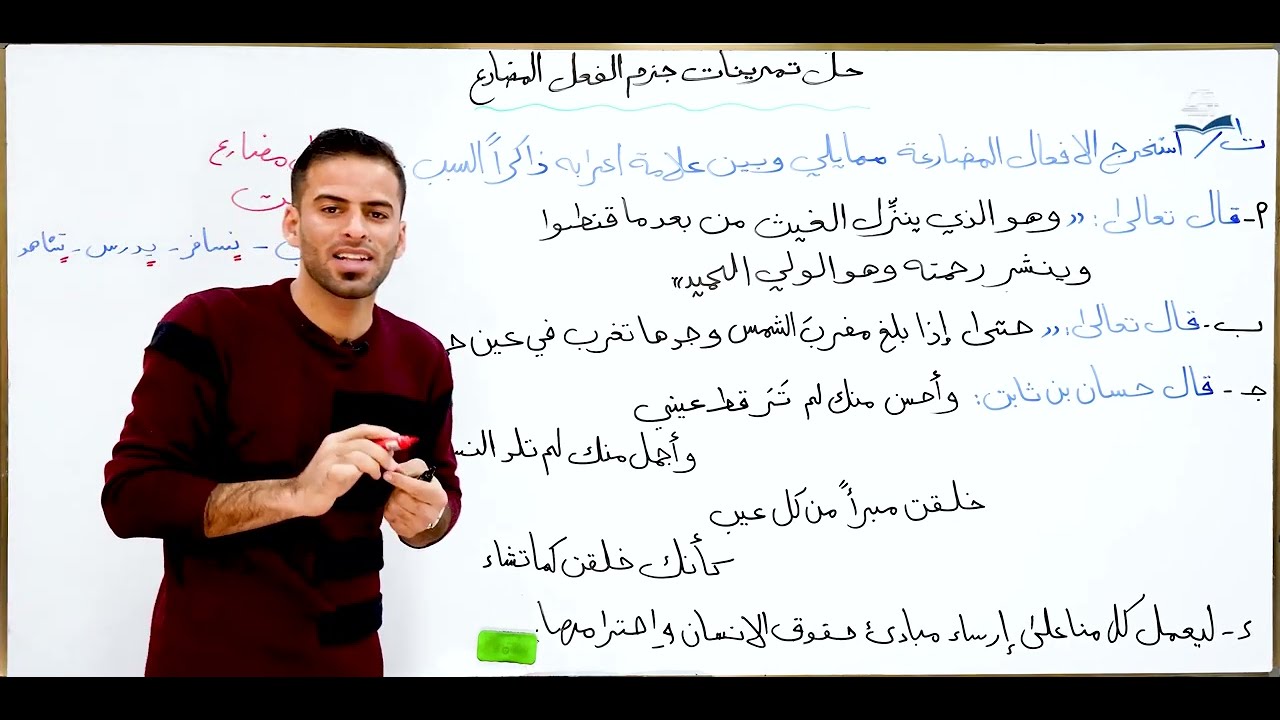 حل تمرينات جزم الفعل المضارع
ت١/ استخرج الافعال المضارعة ممايلي وبين علامة اعرابه ذاكراً السبب
أ- قال تعالى: «وهو الذي ينزِّل الغيث من بعد ما قنطوا
وينشر رحمته وهو الولي الحميد»
ب- قال تعالى: «حتى إذا بلغ مغربَ الشمس وجدها تغرب في عين
جـ - قال حسان بن ثابت: وأحسن منك لم تَرَ قط عيني
وأجمل منك لم تلد
خلقت مبرأً من كل عيب
كأنك خلقت كما تشاء
د- ليعمل كل منا على إرساء مبادئ حقوق الانسان واحترامها.
مضارع
نسافر - يدرس - تشاهد